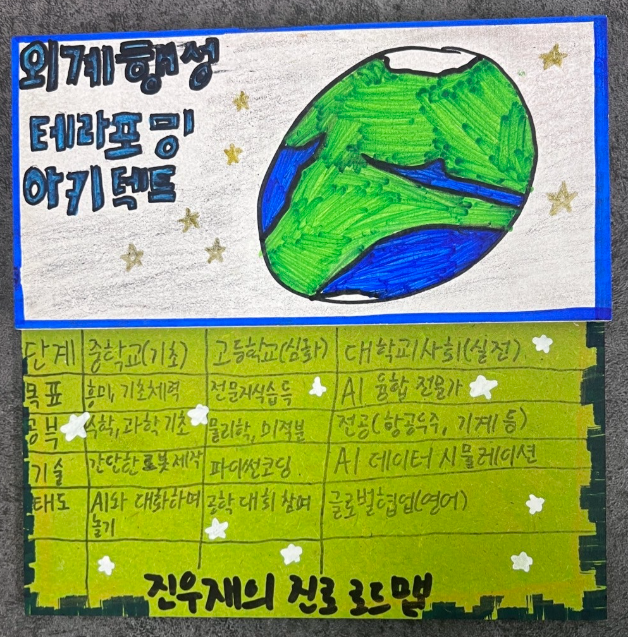 외계행성
테라포밍
아키텍트
단계 중학교(기초) 고등학교(심화) 대학교/사회(실전)
목표 흥미, 기초체력 전문지식습득 AI 융합 전문가
공부 수학, 과학 기초 물리학, 미적분 전공(항공우주, 기계 등)
기술 간단한 로봇 제작 파이썬코딩 AI 데이터 시뮬레이션
태도 AI와 대화하며 놀기 공학 대회 참여 글로벌협업(영어)
진우재의 진로 로드맵